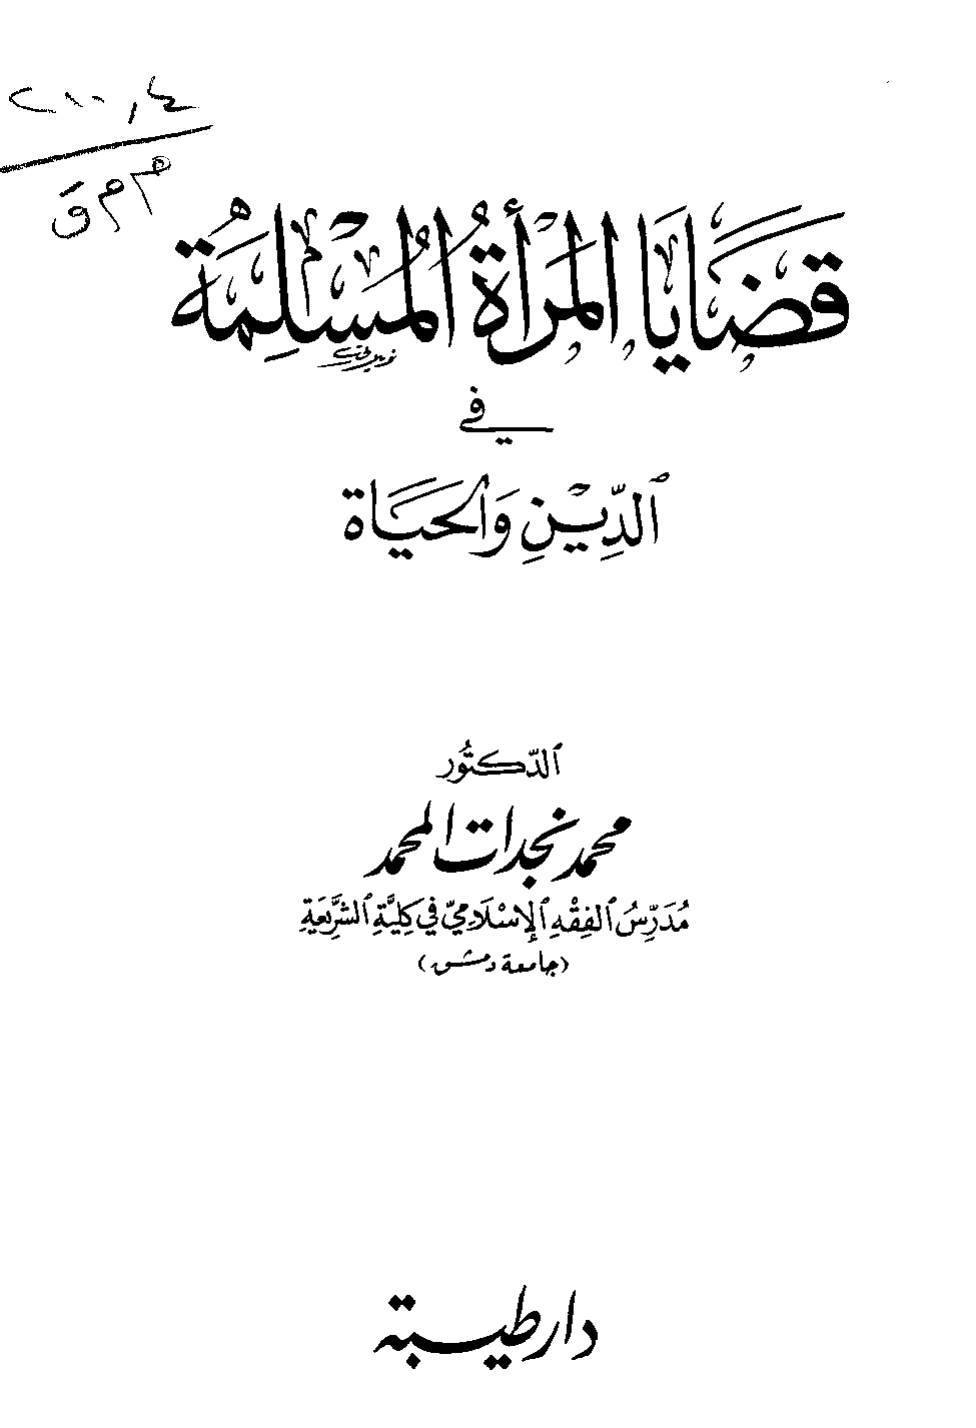 قَضَايَا المَرْأَةِ المُسْلِمَةِ
في
الدِّيْنِ وَالحَيَاة
الدّكتُور
محمد نجدات المحمد
مُدَرِّسُ الفِقْهِ الإِسْلَامِيّ في كليَّةِ الشَّرِيْعَةِ
(جامعة دمشق)
دار طيبة